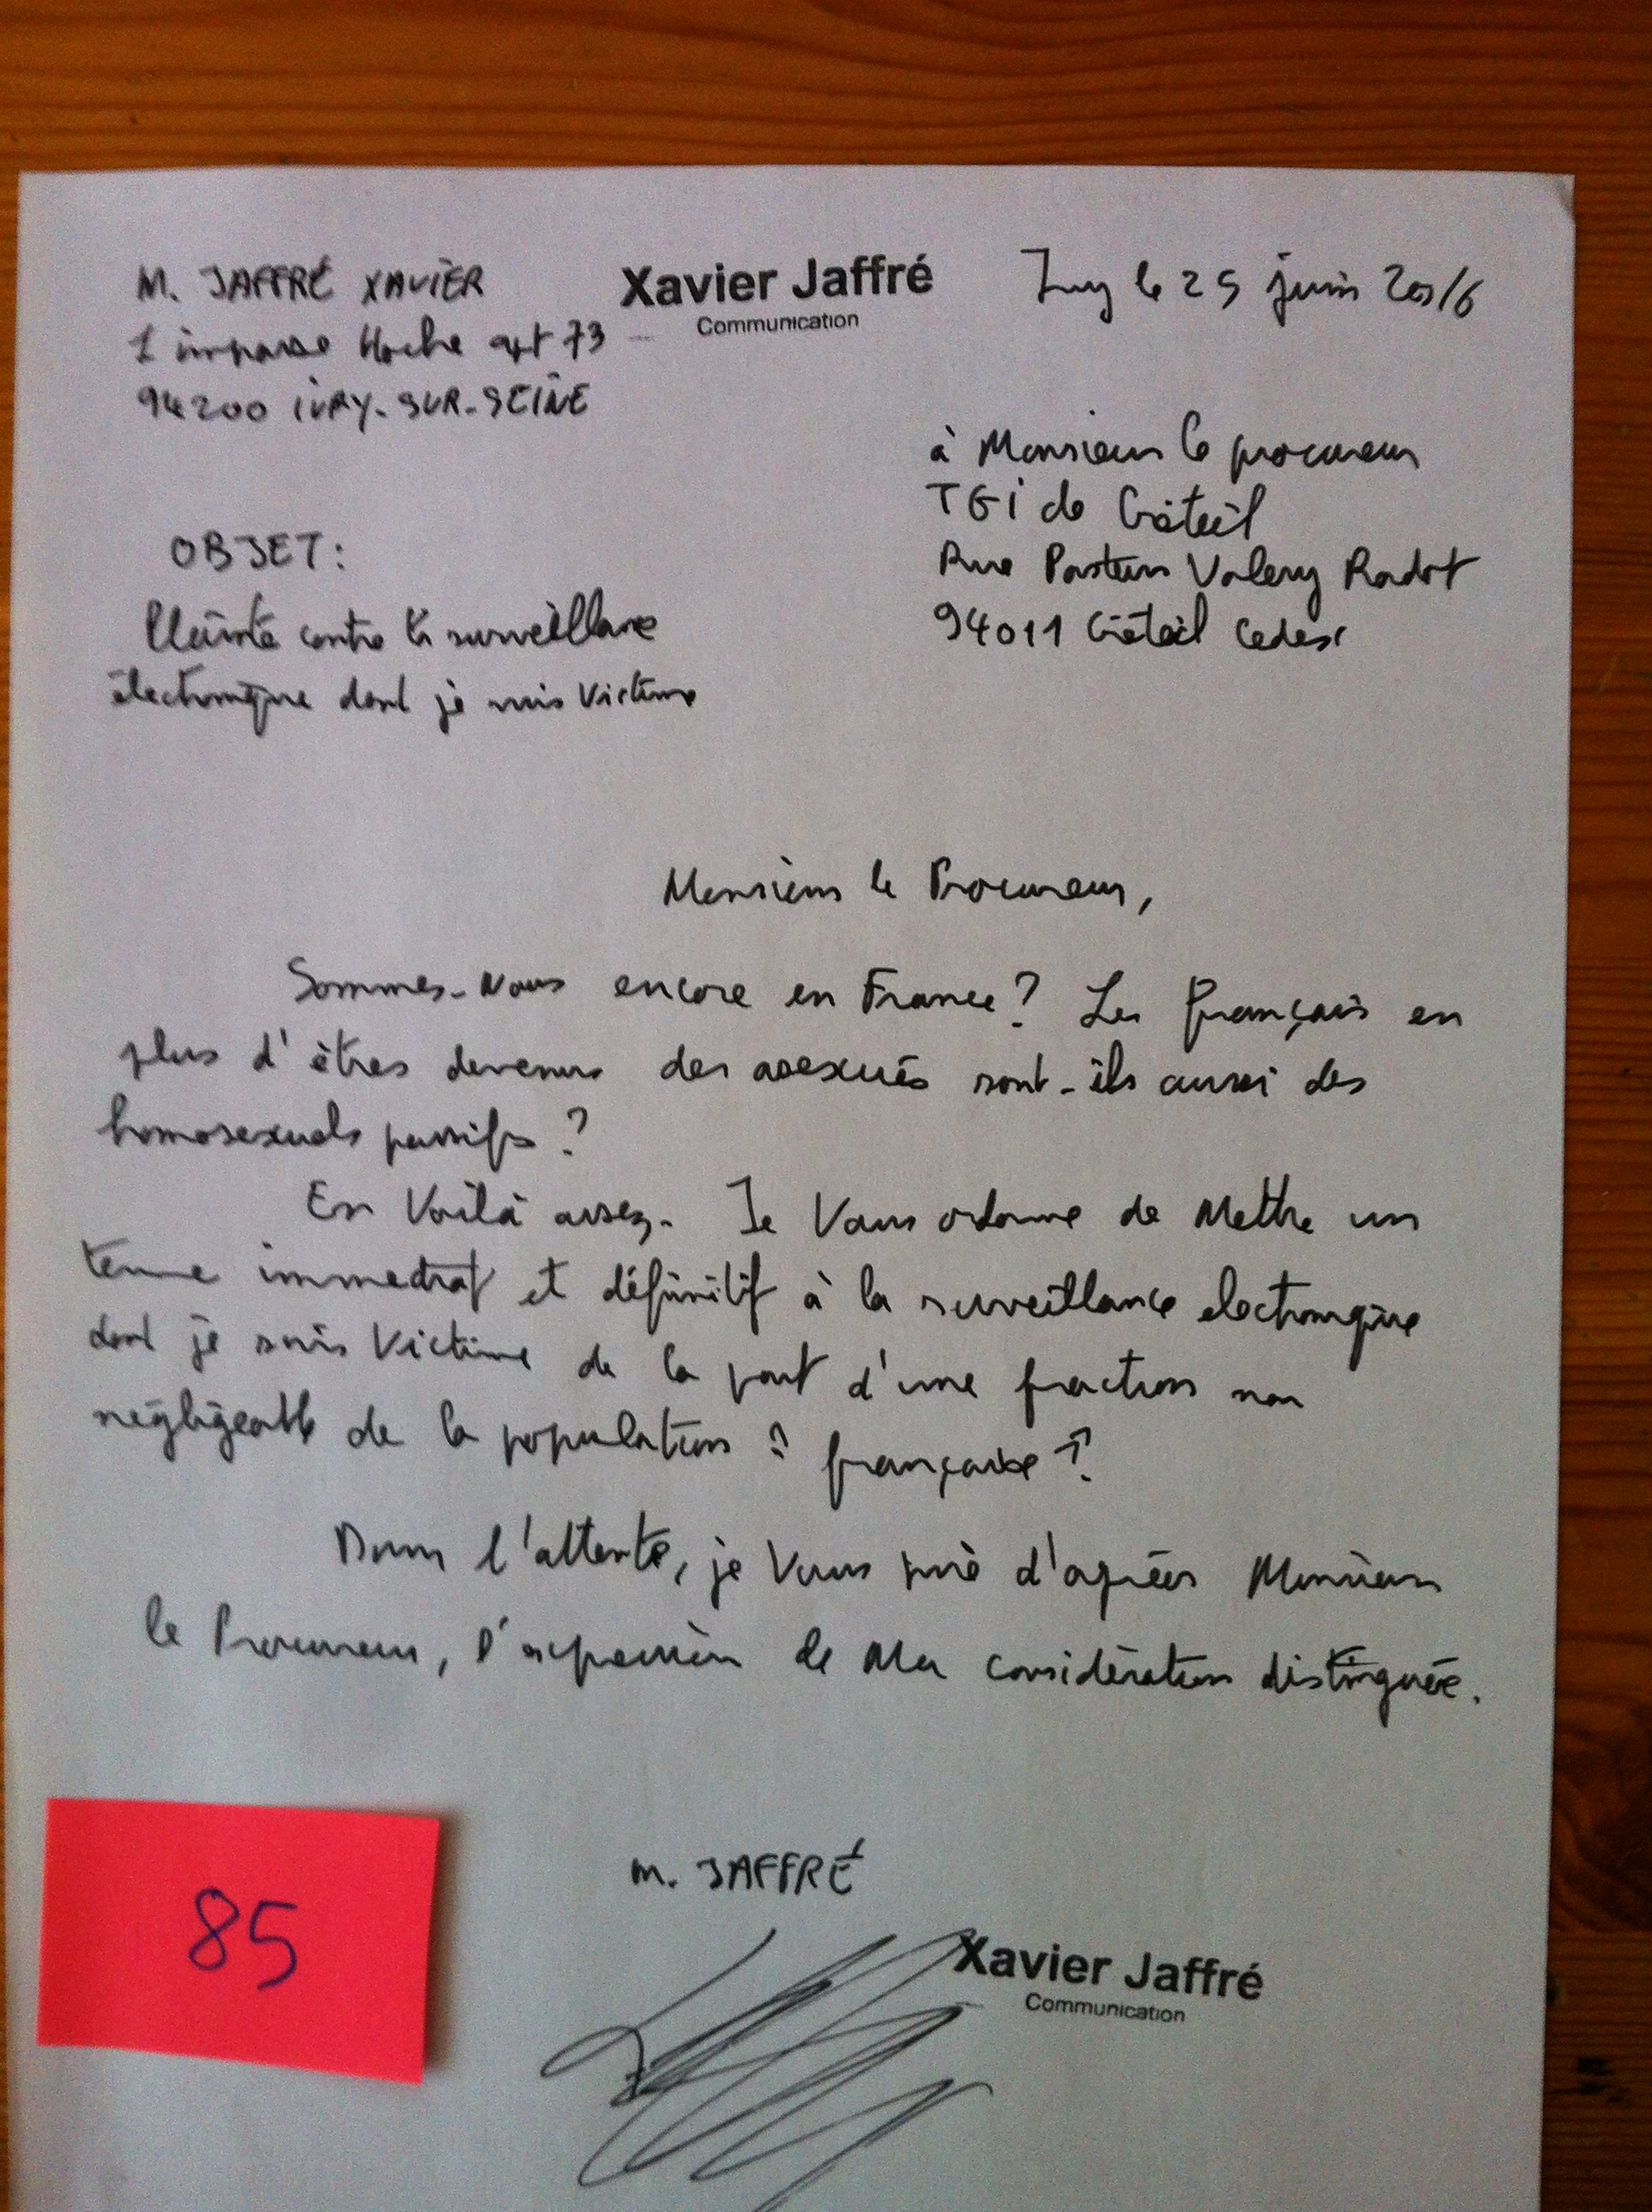 M. JAFFRÉ XAVIER
1 impasse Hoche apt 73
94200 IVRY-SUR-SEINE
Xavier Jaffré
Communication
Ivry le 25 juin 2016
à Monsieur le procureur
TGI de Créteil
Rue Pasteur Valery Radot
94011 Créteil Cedex
OBJET:
Plainte contre la surveillance
électronique dont je suis victime
Monsieur le Procureur,
Sommes-Nous encore en France? Les français en
plus d'êtres devenus des asexués sont-ils aussi des
homosexuels passifs?
En Voilà assez. Je Vous ordonne de Mettre un
terme immediat et définitif à la surveillance electronique
dont je suis Victime de la part d'une fraction non
négligeable de la population "française"?
Dans l'attente, je Vous prie d'agréer Monsieur
le Procureur, l'expression de Ma considération distinguée.
M. JAFFRÉ
Xavier Jaffré
Communication
85